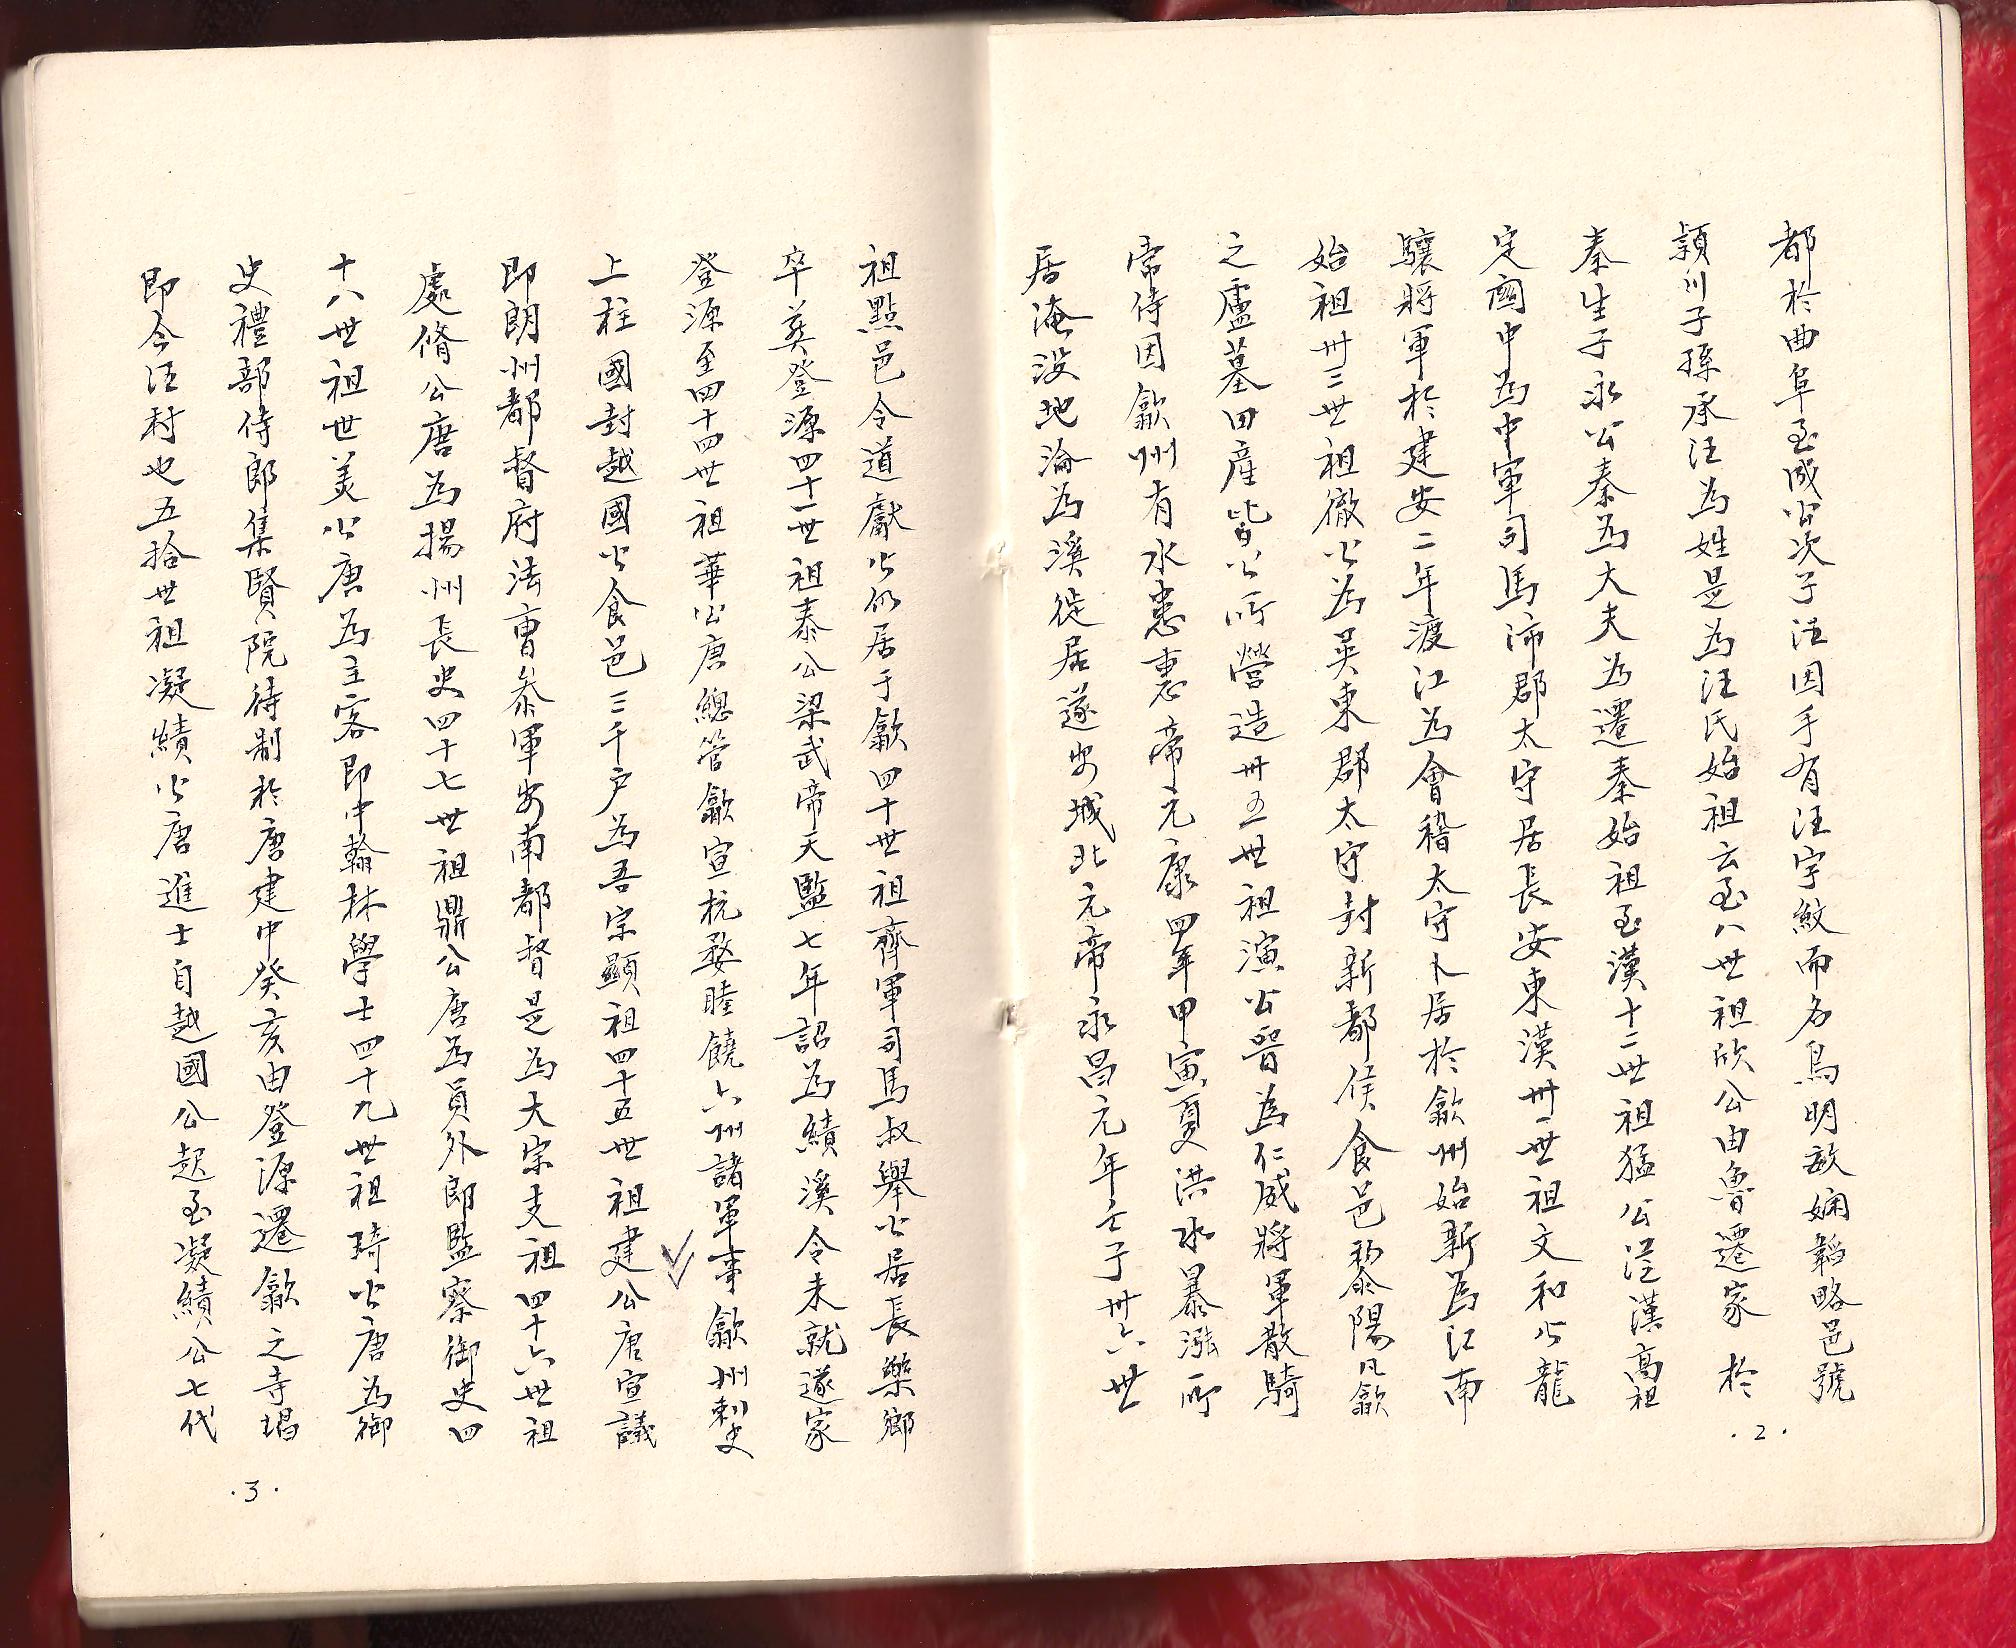 都於曲阜至成公次子汪因手有汪字紋而名焉明敏嫻韜略邑號
潁川子孫承汪為姓是為汪氏始祖云至八世祖欣公由魯遷家於
秦生子永公秦為大夫為遷秦始祖至漢十二世祖猛公從漢高祖
定関中為中軍司馬沛郡太守居長安東漢卅一世祖文和公龍
驤將軍於建安二年渡江為會稽太守卜居於歙州始新為江南
始祖卅三世祖徹公為吳東郡太守封新都侯食邑黎陽凡歙
之廬墓田產皆公所營造卅五世祖演公晉為仁威將軍散騎
常侍因歙州有水患惠帝元康四年甲寅夏洪水暴漲所
居淹没地淪為溪徙居遂安城北元帝永昌元年壬子卅六世
·2·
祖點邑令道獻公仍居于歙四十世祖齊軍司馬叔舉公居長樂鄉
卒葬登源四十一世祖泰公梁武帝天監七年詔為績溪令未就遂家
登源至四十四世祖華公唐總管歙宣杭婺睦饒六州諸軍事歙州刺史
上柱國封越國公食邑三千户為吾宗顯祖四十五世祖建公唐宣議
即朗州都督府法曹叅軍安南都督是為大宗支祖四十六世祖
處脩公唐為揚州長史四十七世祖鼎公唐為員外郎監察御史四
十八世祖世美公唐為主客即中翰林學士四十九世祖琦公唐為御
史禮部侍郎集賢院待制於唐建中癸亥由登源遷歙之寺塌
即今汪村也五拾世祖凝績公唐進士自越國公起至凝績公七代
·3·